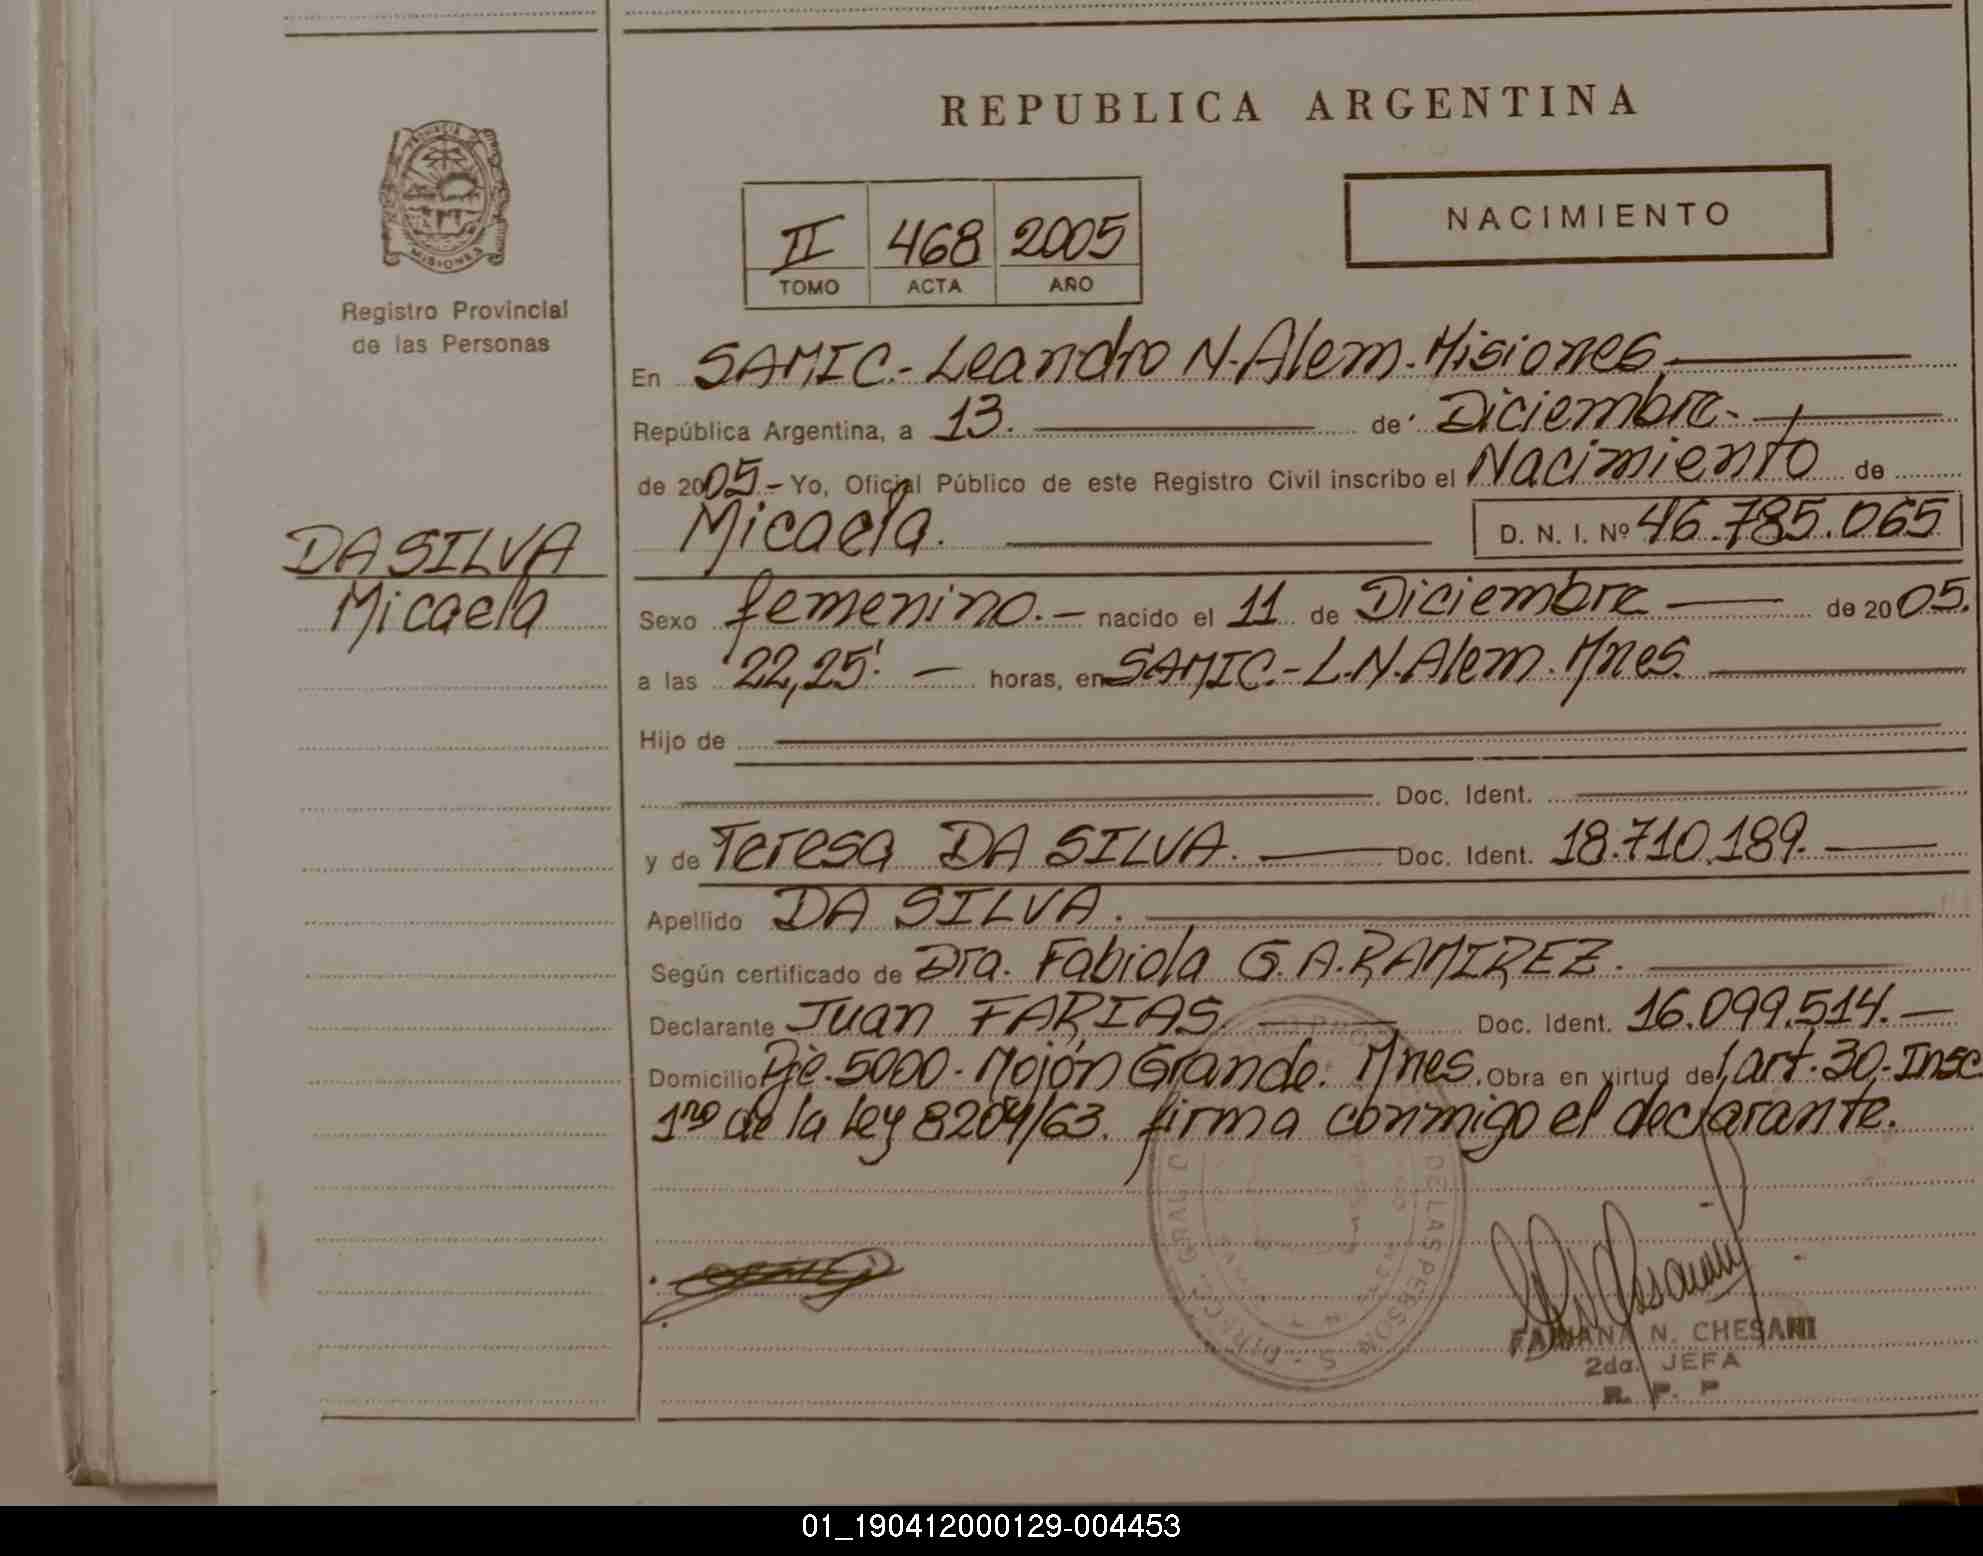 REPUBLICA ARGENTINA
NACIMIENTO
II 468 2005
TOMO ACTA AÑO
PROVINCIA DE
MISIONES
Registro Provincial
de las Personas
DA SILVA
Micaela
En SAMIC.- Leandro N. Alem. Misiones
República Argentina, a 13. de Diciembre.
de 2005.- Yo, Oficial Público de este Registro Civil inscribo el Nacimiento de
Micaela. D. N. I. Nº 46.785.065
Sexo femenino.- nacido el 11 de Diciembre de 2005.
a las 22,25'. horas, en SAMIC.- L.N.Alem. Mnes.
Hijo de
Doc. Ident.
y de Teresa DA SILVA. Doc. Ident. 18.710.189.
Apellido DA SILVA.
Según certificado de Dra. Fabiola G.A.RAMIREZ.
Declarante Juan FARIAS. Doc. Ident. 16.099.514.-
Domicilio Pje. 5000. Mojón Grande. Mnes. Obra en virtud del art. 30.- Insc
1ro de la Ley 8204/63. firma conmigo el declarante.
DE LAS PERSONAS
FABIANA N. CHESANI
2da. JEFA
R. P. P
01_190412000129-004453